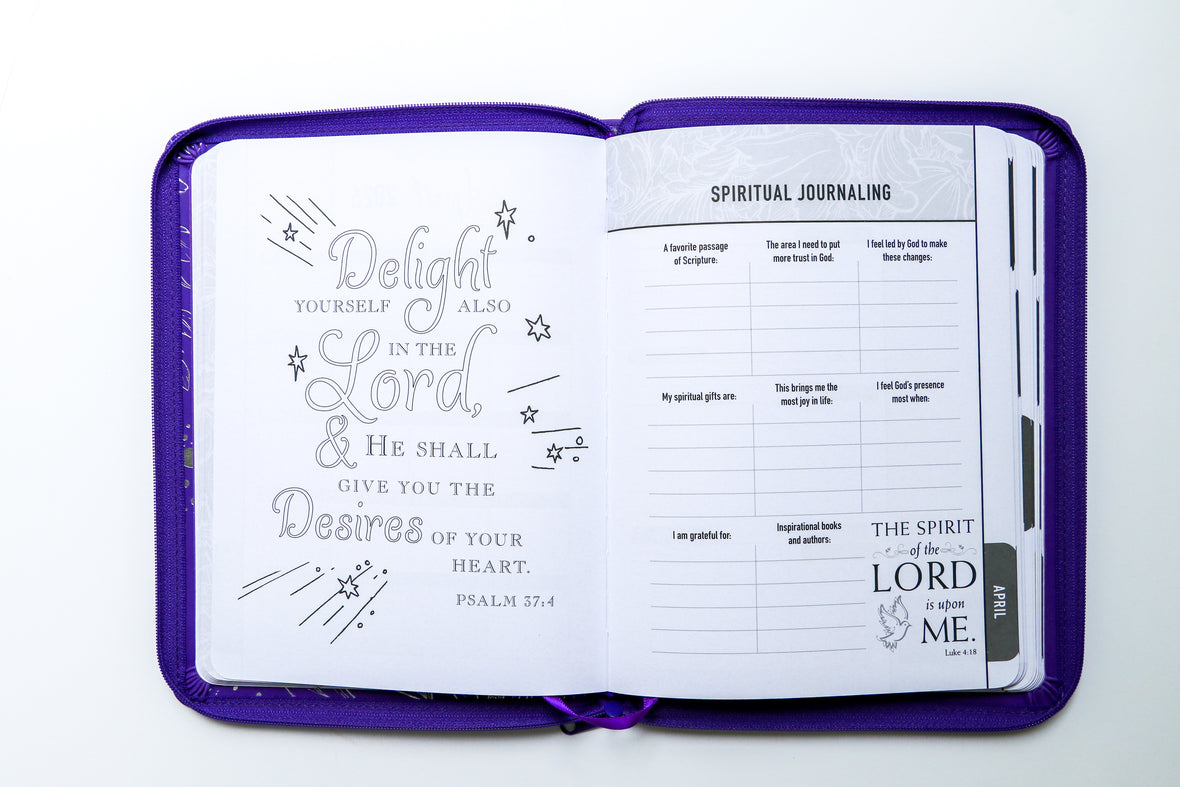 Delight
YOURSELF ALSO
IN THE
Lord,
& HE SHALL
GIVE YOU THE
Desires OF YOUR
HEART.
PSALM 37:4
SPIRITUAL JOURNALING
A favorite passage
of Scripture:
The area I need to put
more trust in God:
I feel led by God to make
these changes:
My spiritual gifts are:
This brings me the
most joy in life:
I feel God's presence
most when:
I am grateful for:
Inspirational books
and authors:
THE SPIRIT
of the
LORD
is upon
ME.
Luke 4:18
APRIL